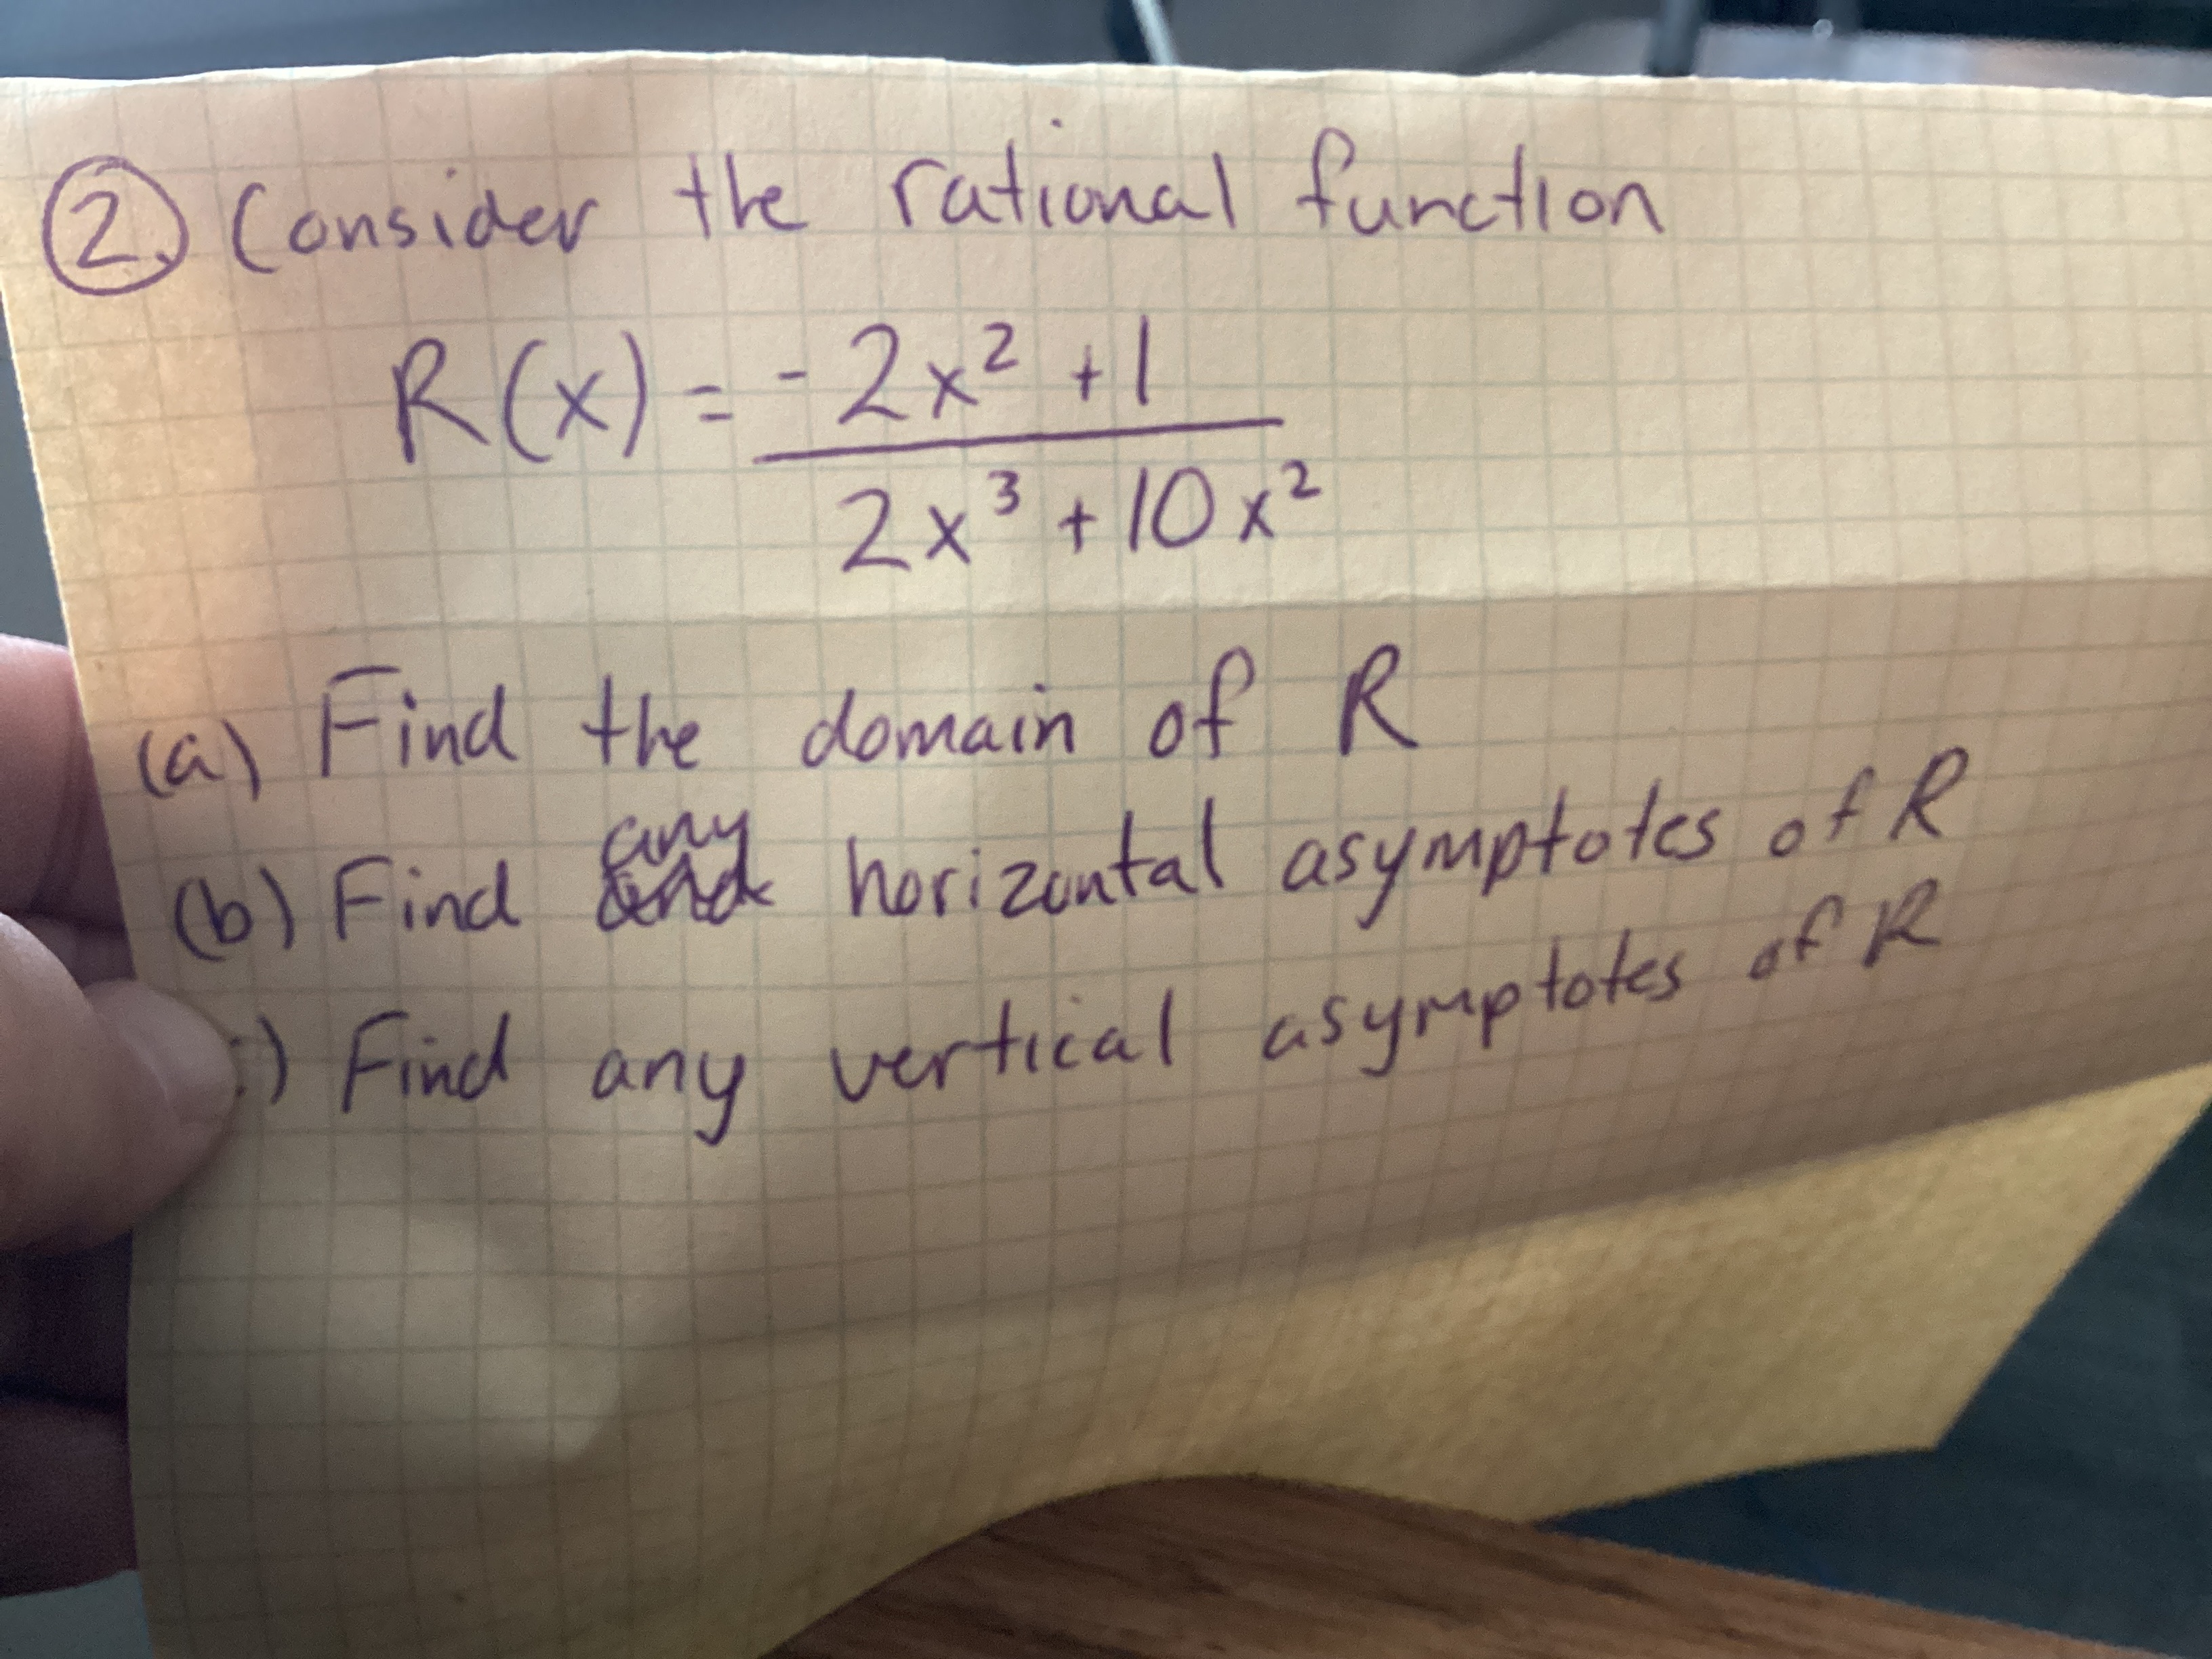 2. Consider the rational function
R(x) = -2x² + 1
2x³ + 10x²
(a) Find the domain of R
any
(b) Find horizontal asymptotes of R
) Find any vertical asymptotes of R